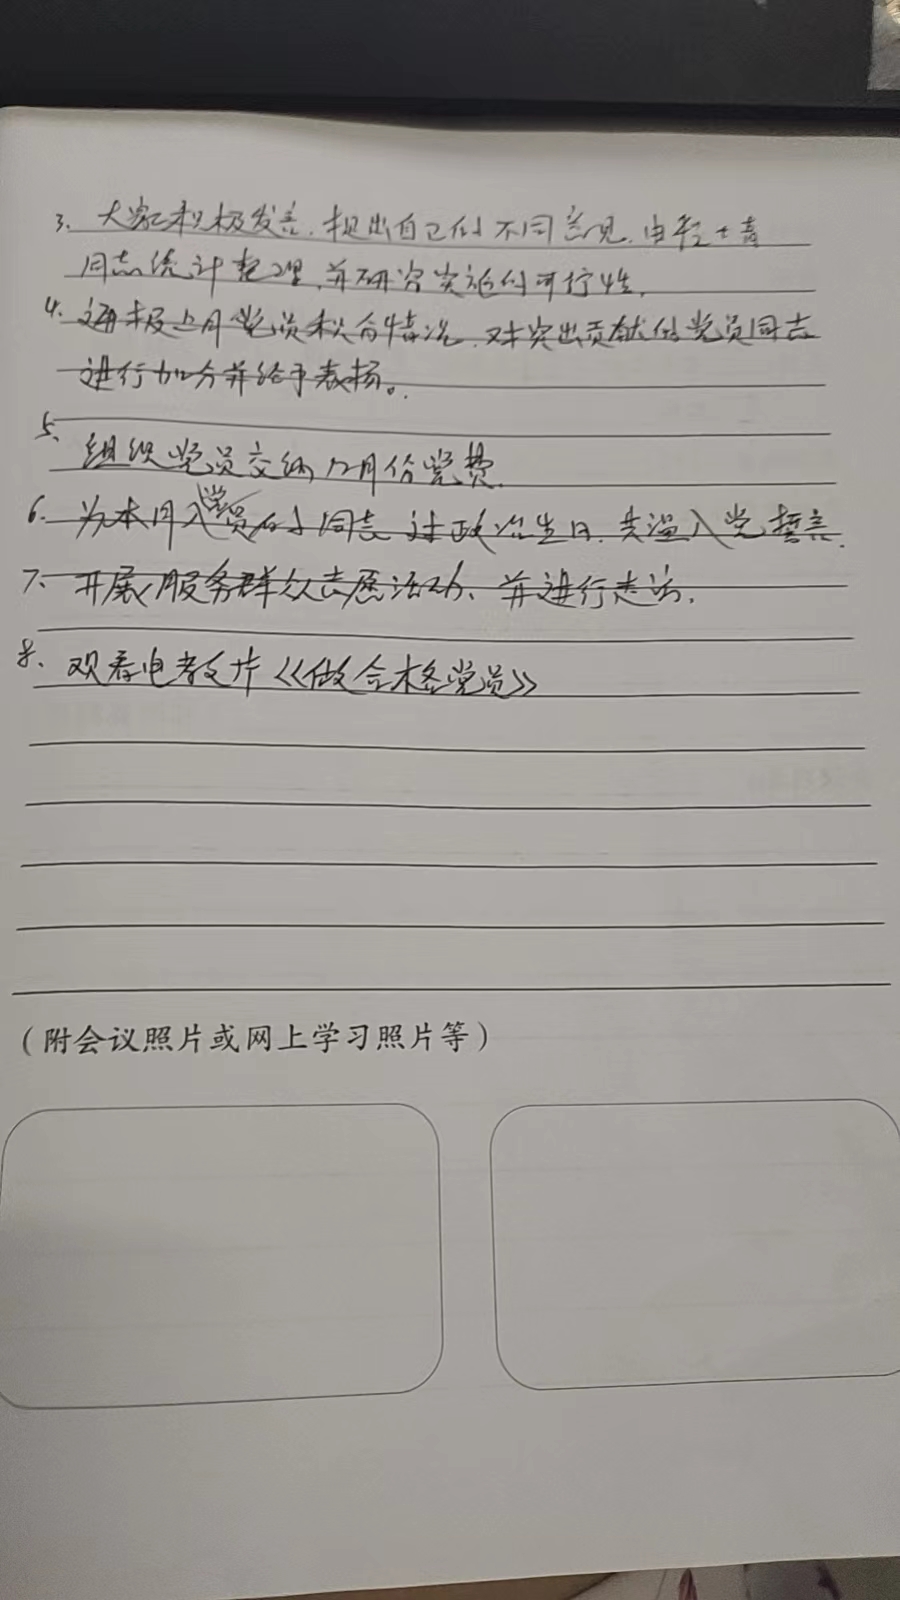 3. 大家积极发言,提出自己的不同意见,由程士青
同志统计整理,并研究实施的可行性.
4. 通报上月党员积分情况,对突出贡献的党员同志
进行加分并给予表扬。
5. 组织党员交纳12月份党费.
6. 为本月入党的同志过政治生日,共温入党誓言.
7. 开展服务群众志愿活动,并进行走访.
8. 观看电教片《做合格党员》
(附会议照片或网上学习照片等)